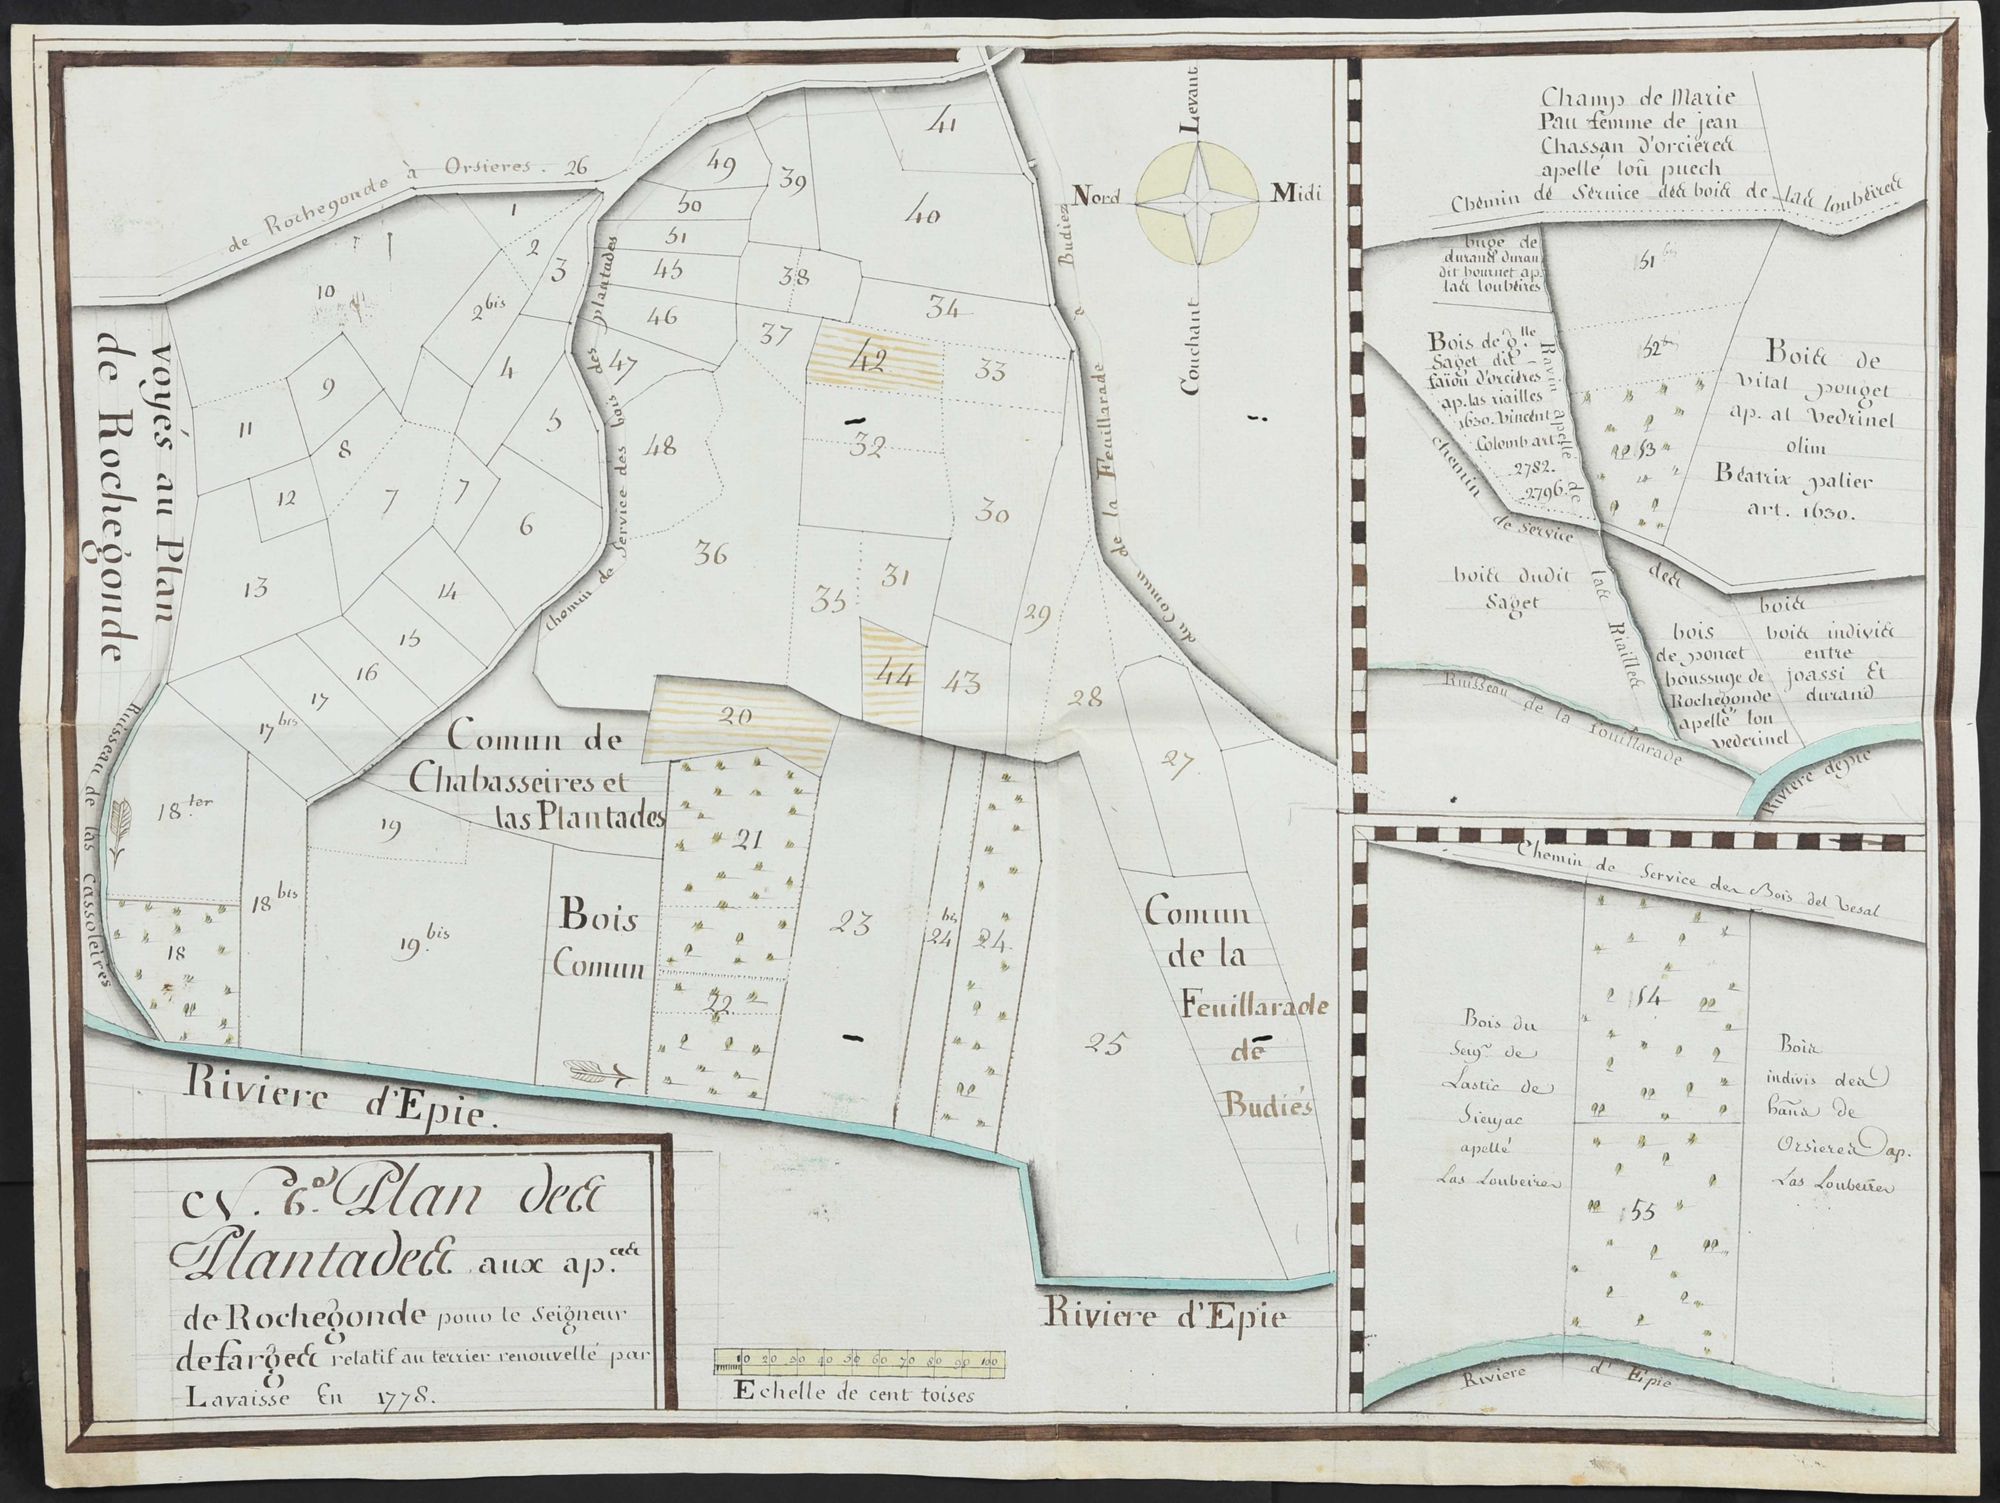 de Rochegonde à Orsieres. 26
voyés au Plan
de Rochegonde
1
2
3
2 bis
4
5
6
7
7
8
9
10
11
12
13
14
15
16
17
17 bis
18 ter
18
18 bis
19
19 bis
Ruisseau de las Cassoleires
chemin de Service des bois des plantades
49
50
51
45
46
47
48
39
38
37
36
41
40
34
42
33
32
30
35
31
29
44
43
28
27
20
21
22
23
bis
24
24
25
Budiez
a
du Comun de la Feuillarade
Levant
Nord
Midi
Couchant
Comun de
Chabasseires et
las Plantades
Bois
Comun
Comun
de la
Feuillarade
de
Budiés
Riviere d'Epie.
Riviere d'Epie
N. 6.e Plan des
Plantades aux ap.ces
de Rochegonde pour le Seigneur
de farges relatif au terrier renouvellé par
Lavaisse En 1778.
10 20 30 40 50 60 70 80 90 100
Echelle de cent toises
Champ de Marie
Pau femme de jean
Chassan d'orcieres
apellé loû puech
Chemin de Service des bois de las loubeires
buge de
durand durau
dit bournet ap.
las loubeires
51 bis
52 bis
53
Bois de d.lle
Saget dit
faïou d'orcieres
ap. las riailles
1630. Vincent
Colomb art.
2782.
2796.
Ravin apelle de las Riailles
Bois de
vital pouget
ap. al vedrinel
olim
Béatrix palier
art. 1630.
chemin de Service des bois
bois dudit
Saget
bois
de poncet
boussuge de
Rochegonde
apellé lou
vederinel
bois indivis
entre
joassi Et
durand
Ruisseau de la fouillarade
Riviere depie
Chemin de Service des Bois del Vesal
54
55
Bois du
Seigr. de
Lastic de
Sieujac
apellé
Las Loubeires
Bois
indivis des
hans de
Orsieres ap.
Las Loubeires
Riviere d'Epie